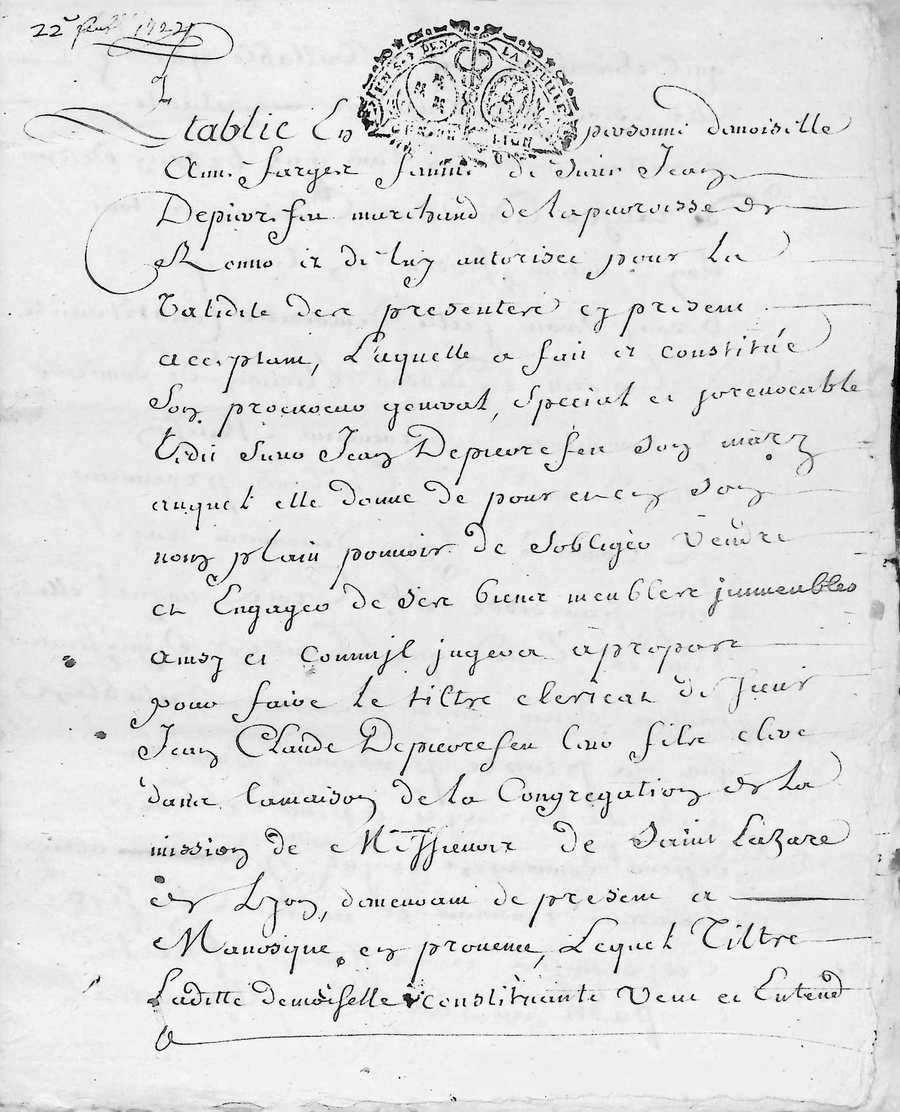 22e 1722
Etablie En personne demoiselle
Anne farges femme de sieur Jean
Depierrefeu marchand de la parroisse de
Renno et de luy autorisee pour la
Validite des presentes cy present
acceptant, Laquelle a fait et constitué
Son procureur general, special et jrrevocable
Ledit sieur Jean Depierrefeu Son mary
auquel elle donne de pour et en Son
nom plain pouvoir de Sobliger Vendre
et Engager de Ses biens meubles jmmeubles
ainsy et Comm jl jugera apropos
pour faire le tiltre clerical de sieur
Jean Claude Depierrefeu leur fils eleve
dans lamaison de la Congregation de La
mission de Messieurs de Saint Lazare
de Lyon, demeurant de present a
Manosque en provence, Lequel Tiltre
Laditte demoiselle constituante Veut et Entend